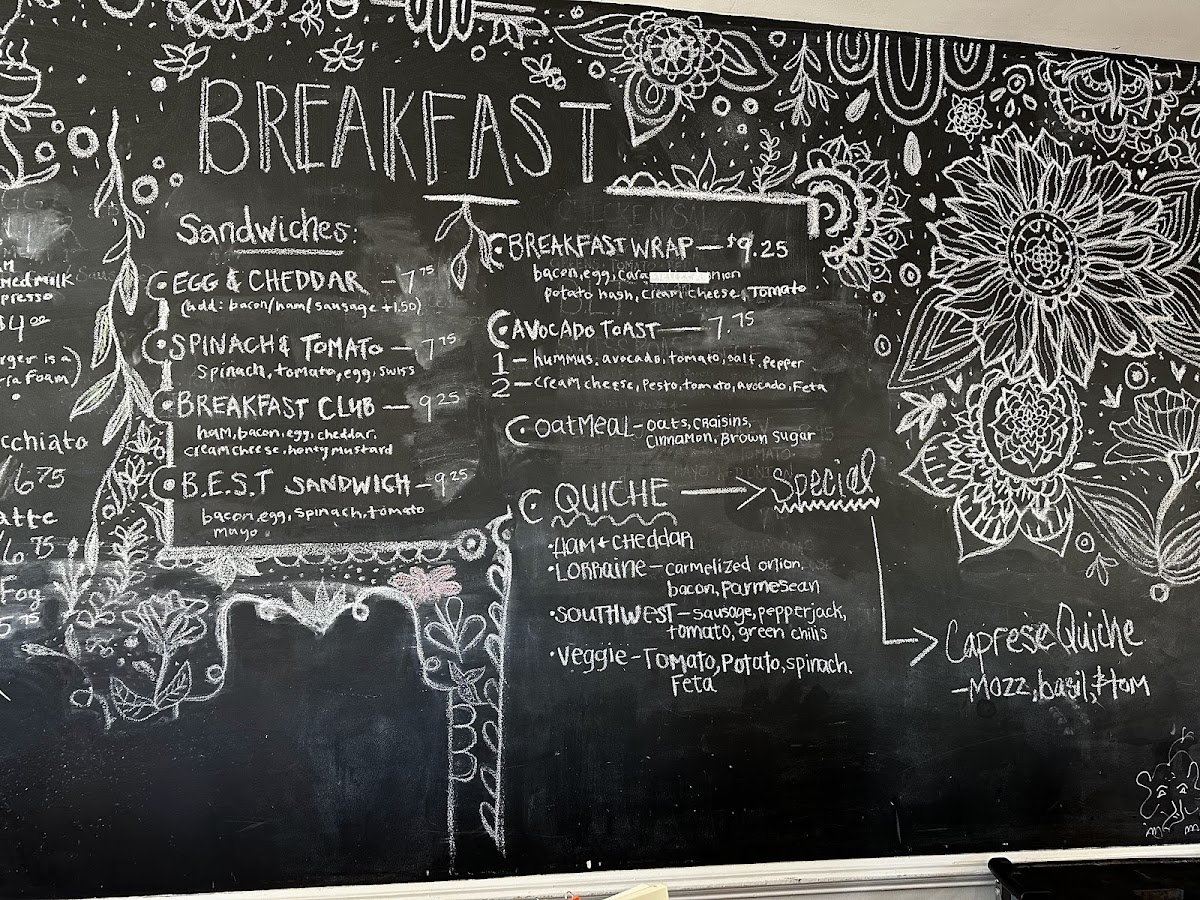 BREAKFAST
med milk
presso
$4 00
rger is a)
ra foam)
cchiato
/6 75
atte
/6 75
Fog
5 75
Sandwiches:
EGG & CHEDDAR - 7 75
(add: bacon/ham/sausage +1.50)
SPINACH & TOMATO - 7 75
Spinach, tomato, egg, swiss
BREAKFAST CLUB - 9 25
ham, bacon, egg, cheddar,
cream cheese, honey mustard
B.E.S.T SANDWICH - 9 25
bacon, egg, spinach, tomato
mayo
BREAKFAST WRAP - $9.25
bacon, egg, cara onion
potato hash, cream cheese, Tomato
AVOCADO TOAST - 7.75
1 - hummus, avocado, tomato, salt, pepper
2 - cream cheese, Pesto, tomato, avocado, Feta
OATMEAL - oats, craisins,
cinnamon, Brown Sugar
QUICHE → Special
• HAM + CHEDDAR
• LORRAINE - carmelized onion,
bacon, parmesean
• SOUTHWEST - sausage, pepperjack,
tomato, green chilis
• Veggie - Tomato, Potato, spinach,
Feta
Caprese Quiche
- Mozz, basil, & tom